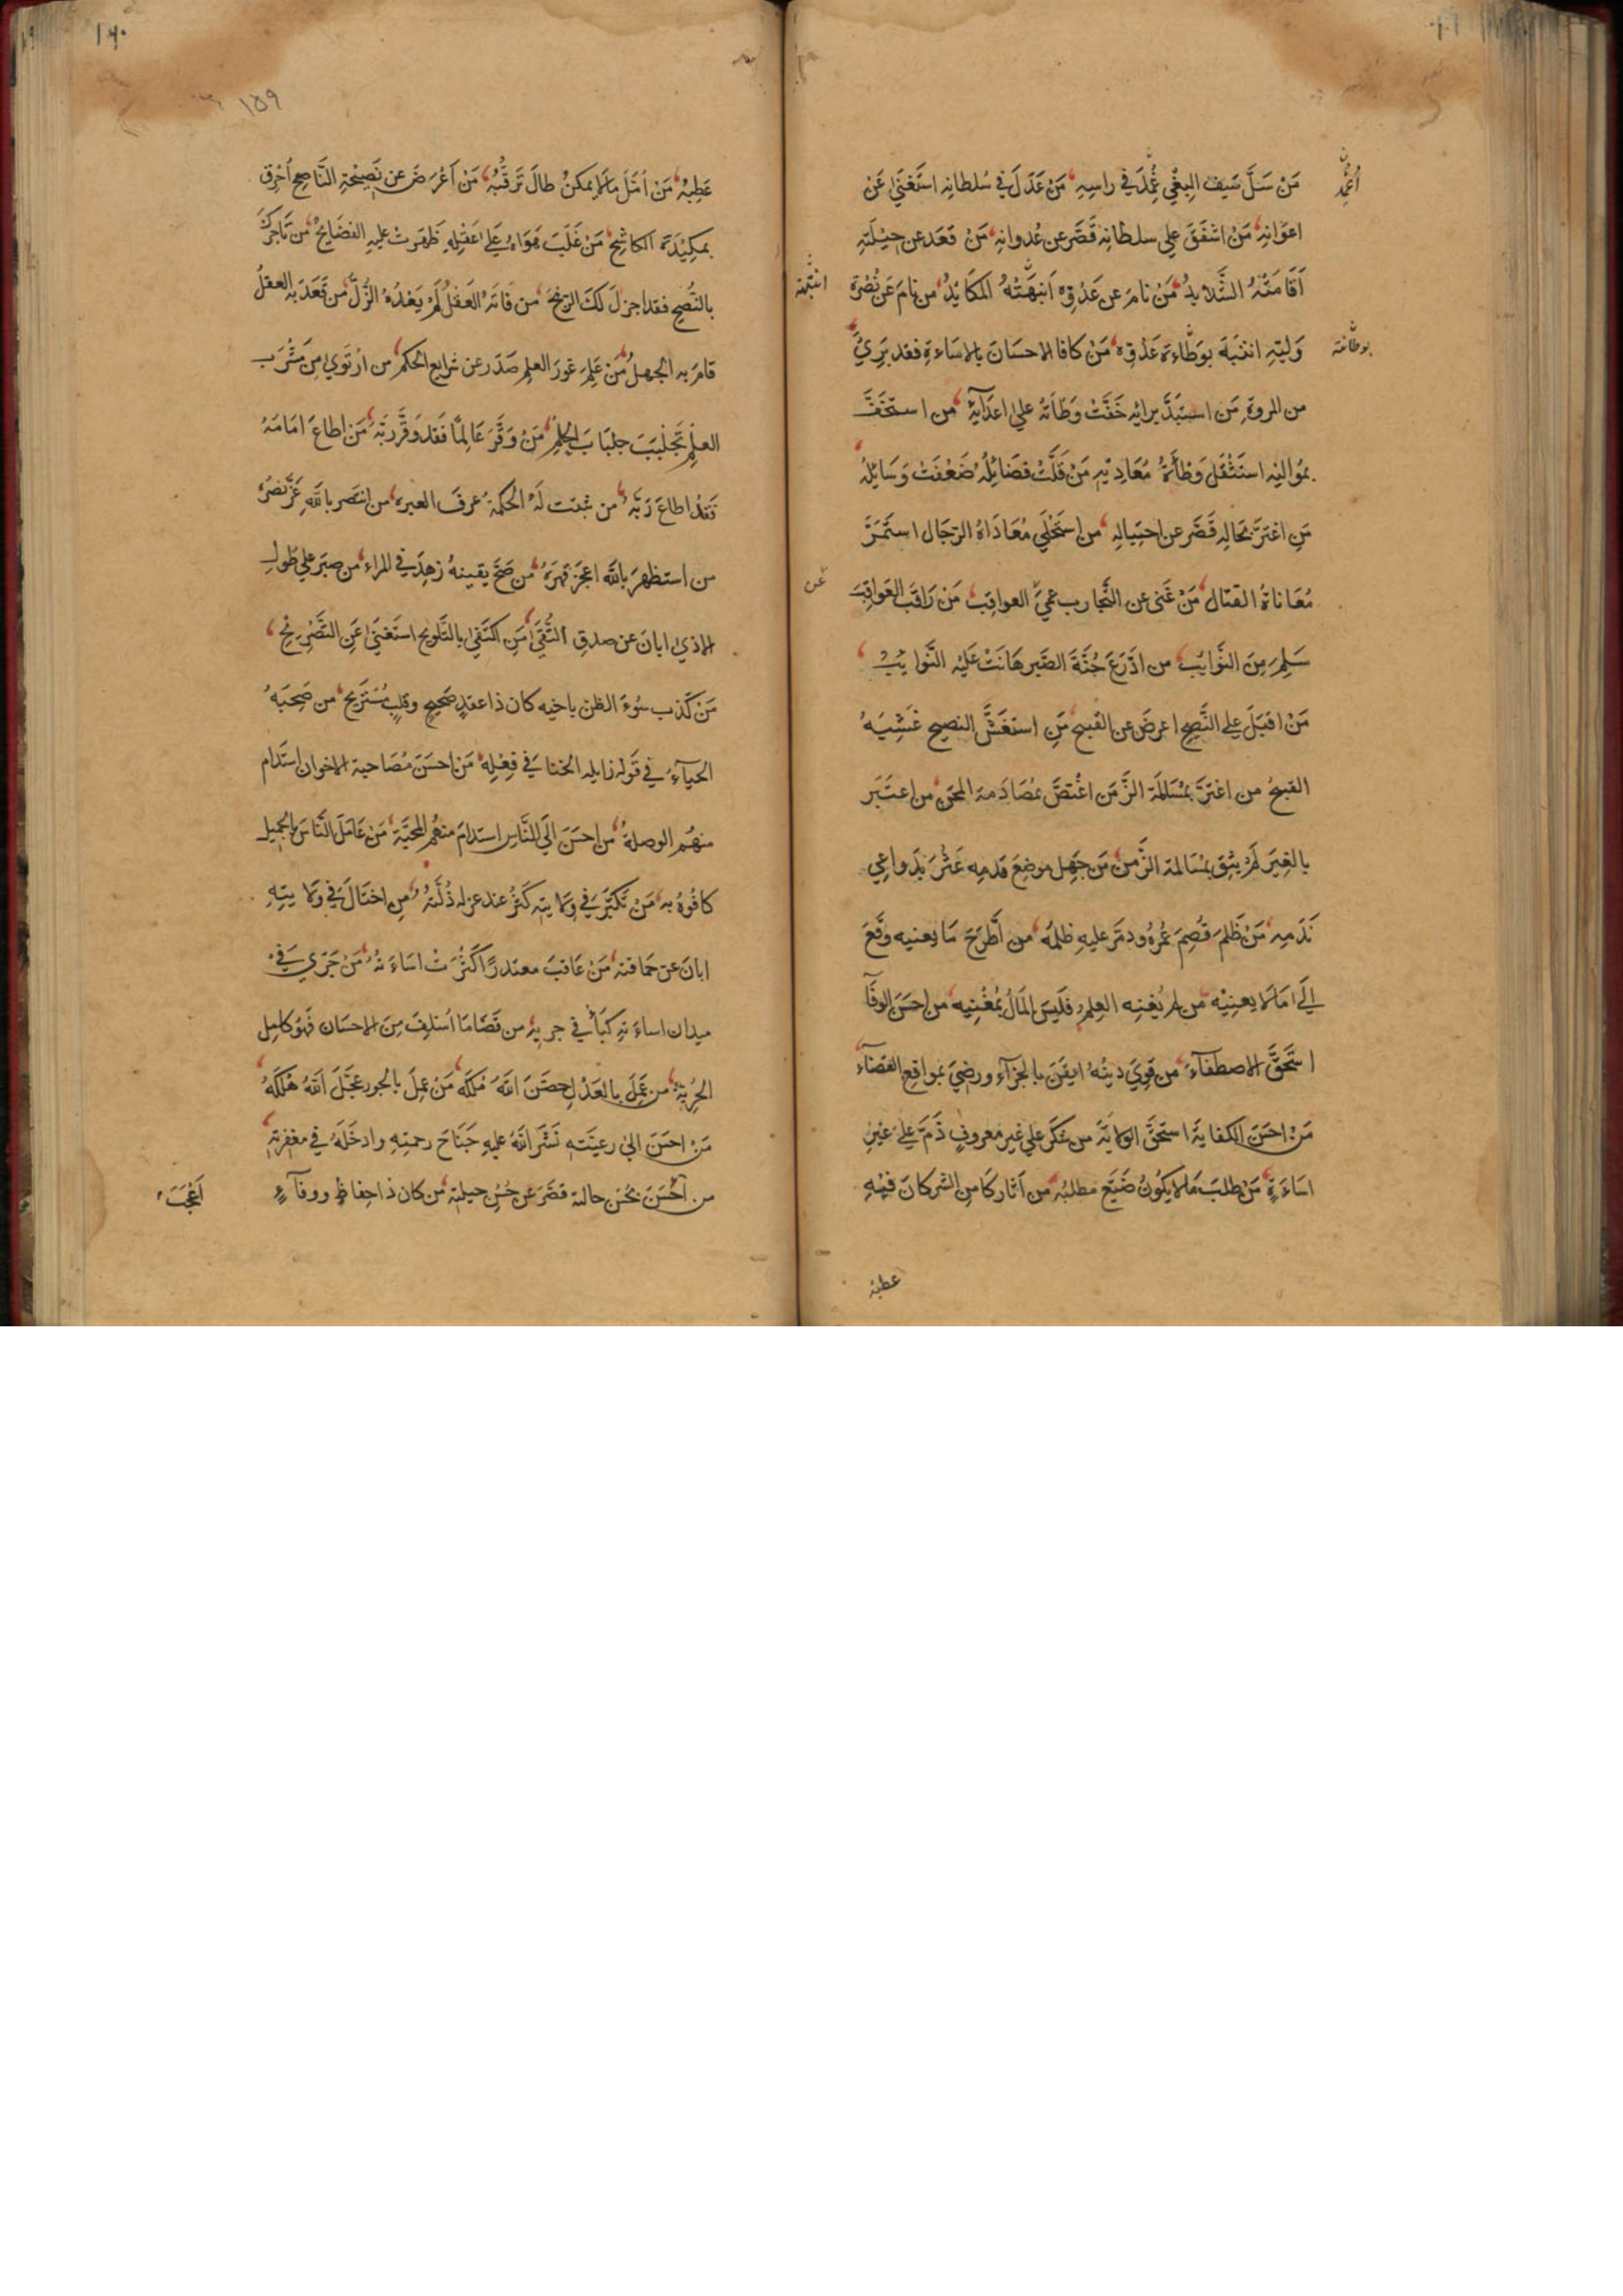 مَنْ سَلَّ سَيفَ البغْيِ غُمِدَ في راسِهِ مَنْ عَدَلَ في سُلطانِهِ استَغنَيٰ عَنْ
أُغمِدَ
اعوَانِهِ مَنْ اشفَقَ علي سلطانِهِ قَصَّر عن عُدوانِهِ مَنْ قعَد عن حِيلَتِهِ
أقَامَتْهُ الشَّدايدُ مَنْ نامَ عن عَدُوِّهِ أنبَهَتْهُ المكَايدُ من نامَ عَن نُصْرَةِ
انتبَهَ
وَليّهِ انتبَهَ بوَطْاءةِ عَدُوّهِ مَنْ كافا الاحسَانَ بالاسَاءةِ فقد بَرِيَ
بوطأته
من المروةِ مَن استبَدَّ برايهِ خَفَّتْ وَطأتهُ علي اعدَآيهِ من استخَفَّ
بمُواليهِ استَثْقَلَ وَطْأَةَ مُعَادِيْهِ مَنْ قَلَّتْ فضَائلُهُ ضَعُفَتْ وَسَائلُهُ
مَنِ اغترَّ بحَالِهِ قَصَّر عن احتِيالِهِ من استَحْلَي مُعَادَاةَ الرّجَال استَمَرَّ
مُعَاناةَ القتال مَنْ غَنى عن التَّجارب عَمِيَ العواقِبَ مَنْ رَاقَبَ العَواقِبَ
عن
سَلِمَ مِنَ النَّوَايِب من ادَّرَعَ جُنَّةَ الصَّبر هَانَتْ عَليْهِ النَّوايِبُ
مَنْ اقبَلَ علي النَّصِيح اعرضَ عن القَبيح مَنِ استغَشَّ النصيحَ غَشِيَهُ
القبيحُ من اغترَّ بمُسَالمَةِ الزَّمَن اغْتصَّ بمُصَادَمةِ المحَنِ من اعتَبَر
بالغِيَر لَمْ يثِقْ بمُسَالمة الزَّمن مَن جَهِل موضِعَ قدمِه عَثَرَ بدَواعِي
نَدَمِهِ مَنْ ظَلمَ قُصِمَ عُمْرُهُ ودمَّر عليهِ ظلمُهُ من أطَّرَحَ مَا يعنيه وقَعَ
إلَي مَا لا يعنِيْه من لم يُغنِه العِلمُ فلَيسَ المَالُ بمُغْنِيهِ من احسَنَ الوفَآ
استَحَقَّ الاصطفآءَ من قوِيَ دينُهُ ايقَنَ بالجزآءِ ورضيَ بمواقعِ القضآءِ
مَنْ احسَنَ الكفايةَ استحَقَّ الولايَةَ من شكَر علي غير معروفٍ ذَمَّ عَليٰ غير
اسَاءَةٍ مَنْ طلَبَ مَا لا يكُونُ ضَيَّع مطلبُه من أثار كَامِن الشر كَانَ فيْهِ
عطبهُ
١٦٠
١٥٩
عَطبُهُ مَنْ أمَّلَ مَا لا يمكنُ طالَ تَرقُّبُهُ مَنْ أعْرَضَ عن نَصِيْحَةِ النَّاصِحِ أُحْرِقَ
بمكِيْدَةِ الكاشِحِ مَنْ غَلَبَ هَوَاهُ عَليٰ عَقْلِهِ ظَهَرتْ عليهِ الفضَايحُ من تَاجَرَكَ
بالنُّصحِ فقد اجزلَ لَكَ الرّبْحَ من فَاتَهُ العَقْلُ لَمْ يَعْدُهُ الذُّلُّ من قَعَدَ به العقلُ
قامَ به الجهلُ مَنْ عَلِمَ غورَ العلم صَدَر عن شرايع الحكم من ارتَوي مِن مَشْرَب
العلمِ تَجَلْبَبَ جلبَابَ الحِلْمِ مَنْ وَقَّرَ عَالِمًا فَقد وَقَّرَ رَبَّهُ مَن اطاعَ امَامَهُ
فَقدْ اطاعَ رَبَّهُ من ثبَتت لَهُ الحكمةُ عرفَ العبره من انتَصر باللهِ عَزَّ نصْرُهُ
من استظهَر باللّه اعجَز قهرَهُ من صَحَّ يقينهُ زهِدَ في المراءِ من صبَر علي طولِ
الاذي ابانَ عن صدقِ التُّقَي مَنِ اكتَفَي بالتَّلويح استَغنَيٰ عَنِ التَّصْرِيحِ
مَنْ كَذب سُوءَ الظن باخيه كان ذا عقدٍ صَحيحٍ وقلبٍ مُستَرِيح من صَحِبَهُ
الحيآءُ في قَولِه زايله الخنَا في فِعْلِهِ مَن احسَنَ مُصَاحبة الاخوان استَدَام
منهُم الوصلةَ من احسَنَ الَي النَّاسِ استدامَ منهُم المحبَّةَ مَنْ عَامَلَ النَّاسَ بالجميلِ
كافُوهُ به مَنْ تَكَبَّرَ في ولايتِهِ كَثُرَ عند عزله ذُلَّتهُ مَنِ اختَالَ في ولايتِهِ
ابانَ عن حمَاقتهِ مَنْ عَاقبَ معتذرًا كثُرَتْ اساءَتهُ مَنْ جَري في
ميدان اساءَتِهِ كبَا في جريهِ من قضَا مَا أُسلِفَ مِنَ الاحسَان فَهُو كامِل
الحُرِيّةِ من عَمِلَ بالعَدْلِ حصَّنَ اللهُ مُلكَهُ مَنْ عمِلَ بالجور عجَّلَ اللهُ هُلكَهُ
مَنْ احسَنَ اليٰ رعيَّتهِ نَشَرَ اللهُ عليهِ جَنَاحَ رحمتِهِ وادخَلَهُ في مغفرتِهِ
من أحْسَنَ بحُسْن حالتهِ قصَّر عَن حُسْنِ حيلتهِ مَن كان ذا حِفاظٍ ووفآءٍ
أعْجَبَ